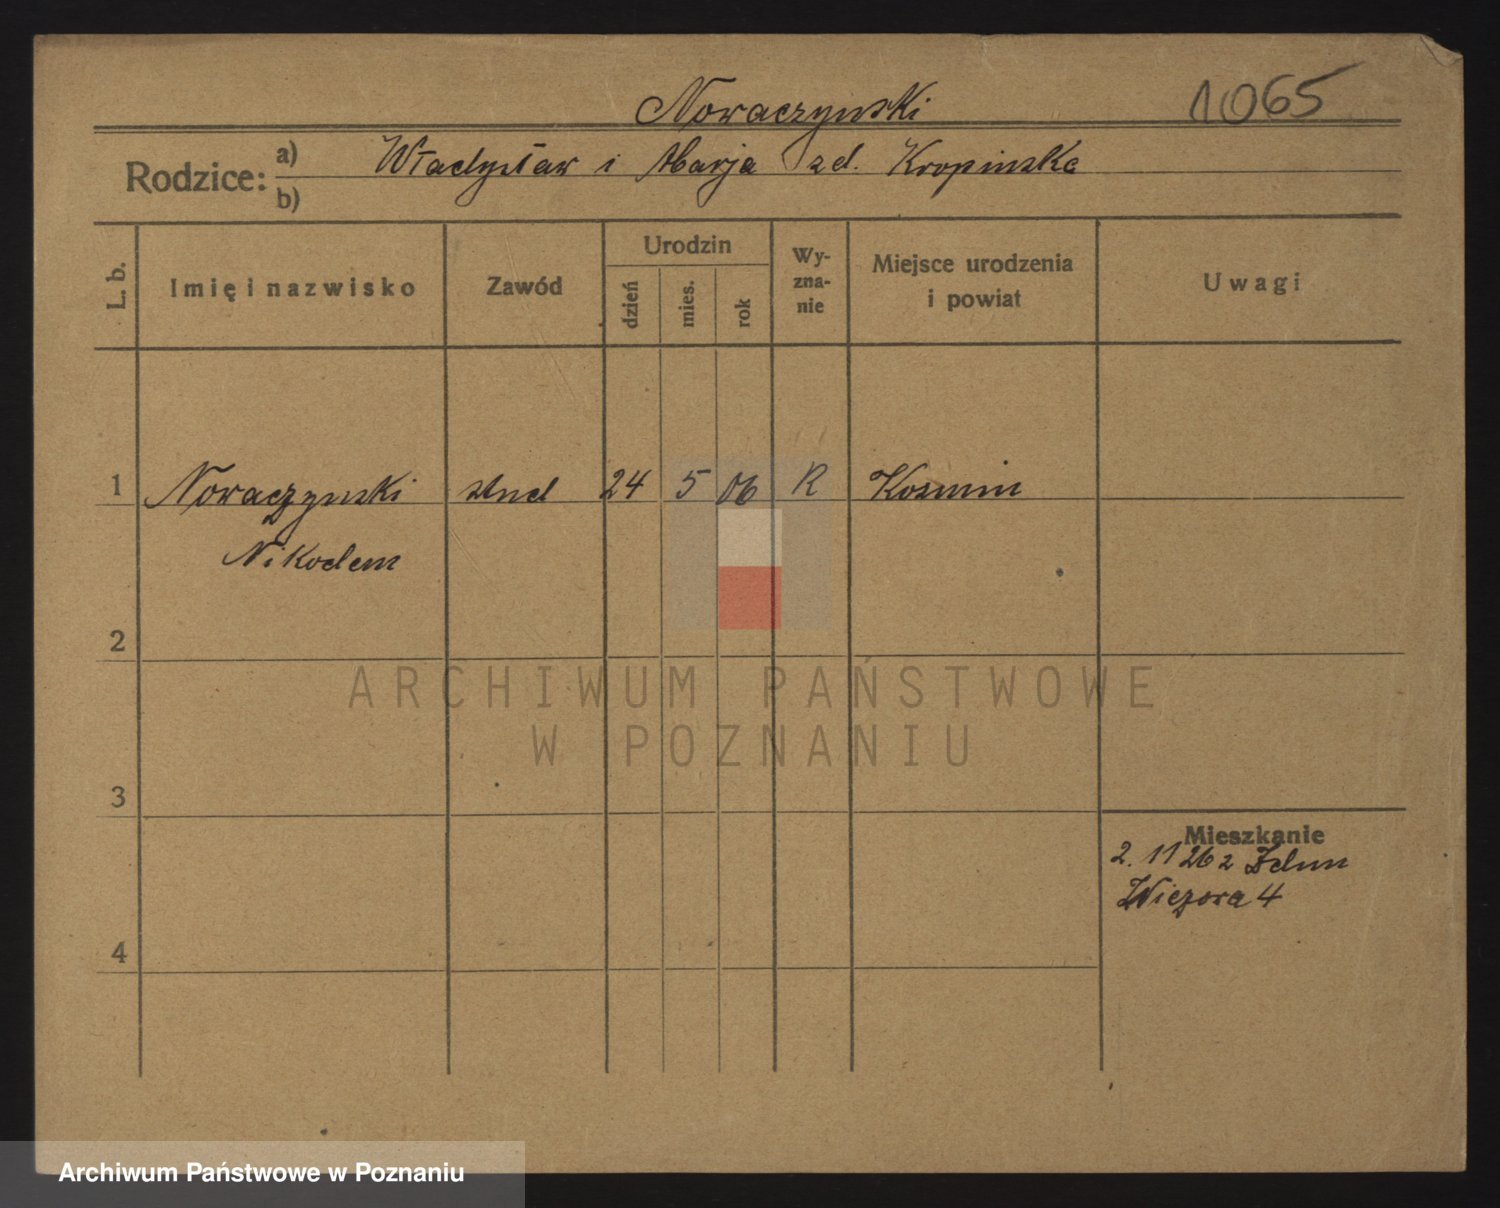 Nowaczynski
1065
Rodzice: a) Władysław i Marja zd. Kropinska
b)
L. b.
Imię i nazwisko
Zawód
Urodzin
dzień
mies.
rok
Wy-
zna-
nie
Miejsce urodzenia
i powiat
Uwagi
1 Nowaczynski stud 24 5 06 R Kosmin
Nikodem
2
3
4
Mieszkanie
2. 11 26 z Zdun
4
ARCHIWUM PAŃSTWOWE
W POZNANIU
Archiwum Państwowe w Poznaniu